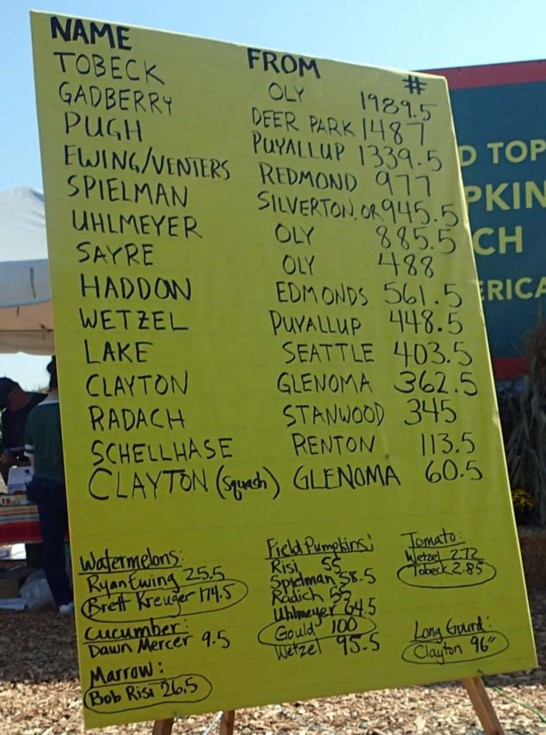 NAME FROM #
TOBECK OLY 1989.5
GADBERRY DEER PARK 1487
PUGH PUYALLUP 1339.5
EWING/VENTERS REDMOND 977
SPIELMAN SILVERTON, OR 945.5
UHLMEYER OLY 885.5
SAYRE OLY 488
HADDON EDMONDS 561.5
WETZEL PUYALLUP 448.5
LAKE SEATTLE 403.5
CLAYTON GLENOMA 362.5
RADACH STANWOOD 345
SCHELLHASE RENTON 113.5
CLAYTON (Squash) GLENOMA 60.5
Watermelons:
Ryan Ewing 25.5
Brett Kreuger 174.5
Cucumber:
Dawn Mercer 9.5
Marrow:
Bob Risi 26.5
Field Pumpkins:
Risi 55
Spielman 58.5
Radich 55
Uhlmeyer 64.5
Gould 100
Wetzel 95.5
Tomato:
Wetzel 2.72
Tobeck 2.85
Long Gourd:
Clayton 96"
D TOP
PKIN
CH
ERICA